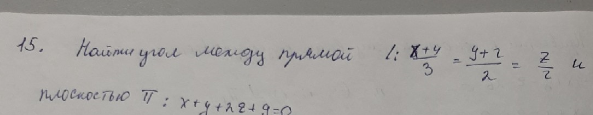 15. Найти угол между прямой l: x+4/3 = y+2/2 = z/2 и
плоскостью π: x+y+2z+9=0